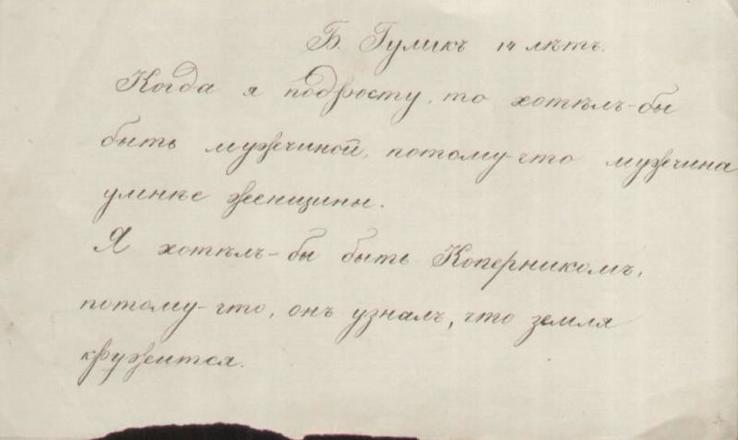 Б. Гуликъ 14 лѣтъ.
Когда я подросту, то хотѣлъ-бы
быть мужчиной, потому-что мужчина
умнѣе женщины.
Я хотѣлъ-бы быть Коперникомъ,
потому-что, онъ узналъ, что земля
кружится.